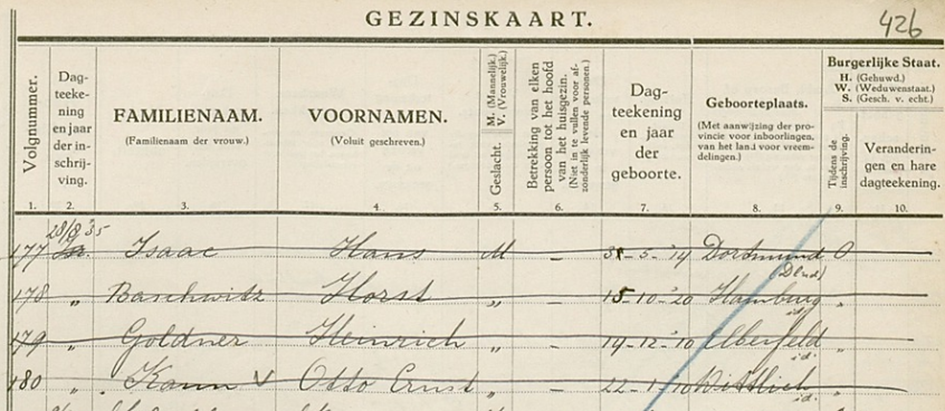 GEZINSKAART. 426
Volgnummer. Dagteekening en jaar der inschrijving. FAMILIENAAM. (Familienaam der vrouw.) VOORNAMEN. (Voluit geschreven.) Geslacht. M. (Mannelijk.) V. (Vrouwelijk.) Betrekking van elken persoon tot het hoofd van het huisgezin. (Niet in te vullen voor afzonderlijk levende personen.) Dagteekening en jaar der geboorte. Geboorteplaats. (Met aanwijzing der provincie voor inboorlingen, van het land voor vreemdelingen.) Burgerlijke Staat. H. (Gehuwd.) W. (Weduwenstaat.) S. (Gesch. v. echt.) Tijdens de inschrijving. Veranderingen en hare dagteekening.
1. 2. 3. 4. 5. 6. 7. 8. 9. 10.
28/8 '35
177 Isaac Hans M - 31-5-'14 Dortmund O
(Dlnd)
178 " Baschwitz Horst " - 15-10-'20 Hamburg "
id.
179 " Goldner Heinrich " - 14-12-'10 Elberfeld "
id.
180 " Kann v Otto Ernst " - 22-1-'10 Wittlich "
id.